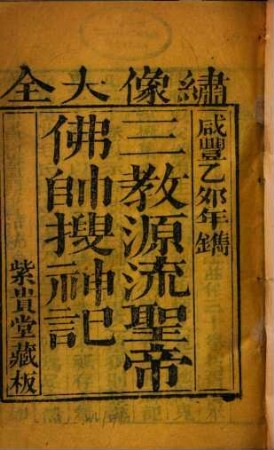 繡像大全
咸豐乙卯年鐫
三教源流聖帝
佛帥搜神記
紫貴堂藏板